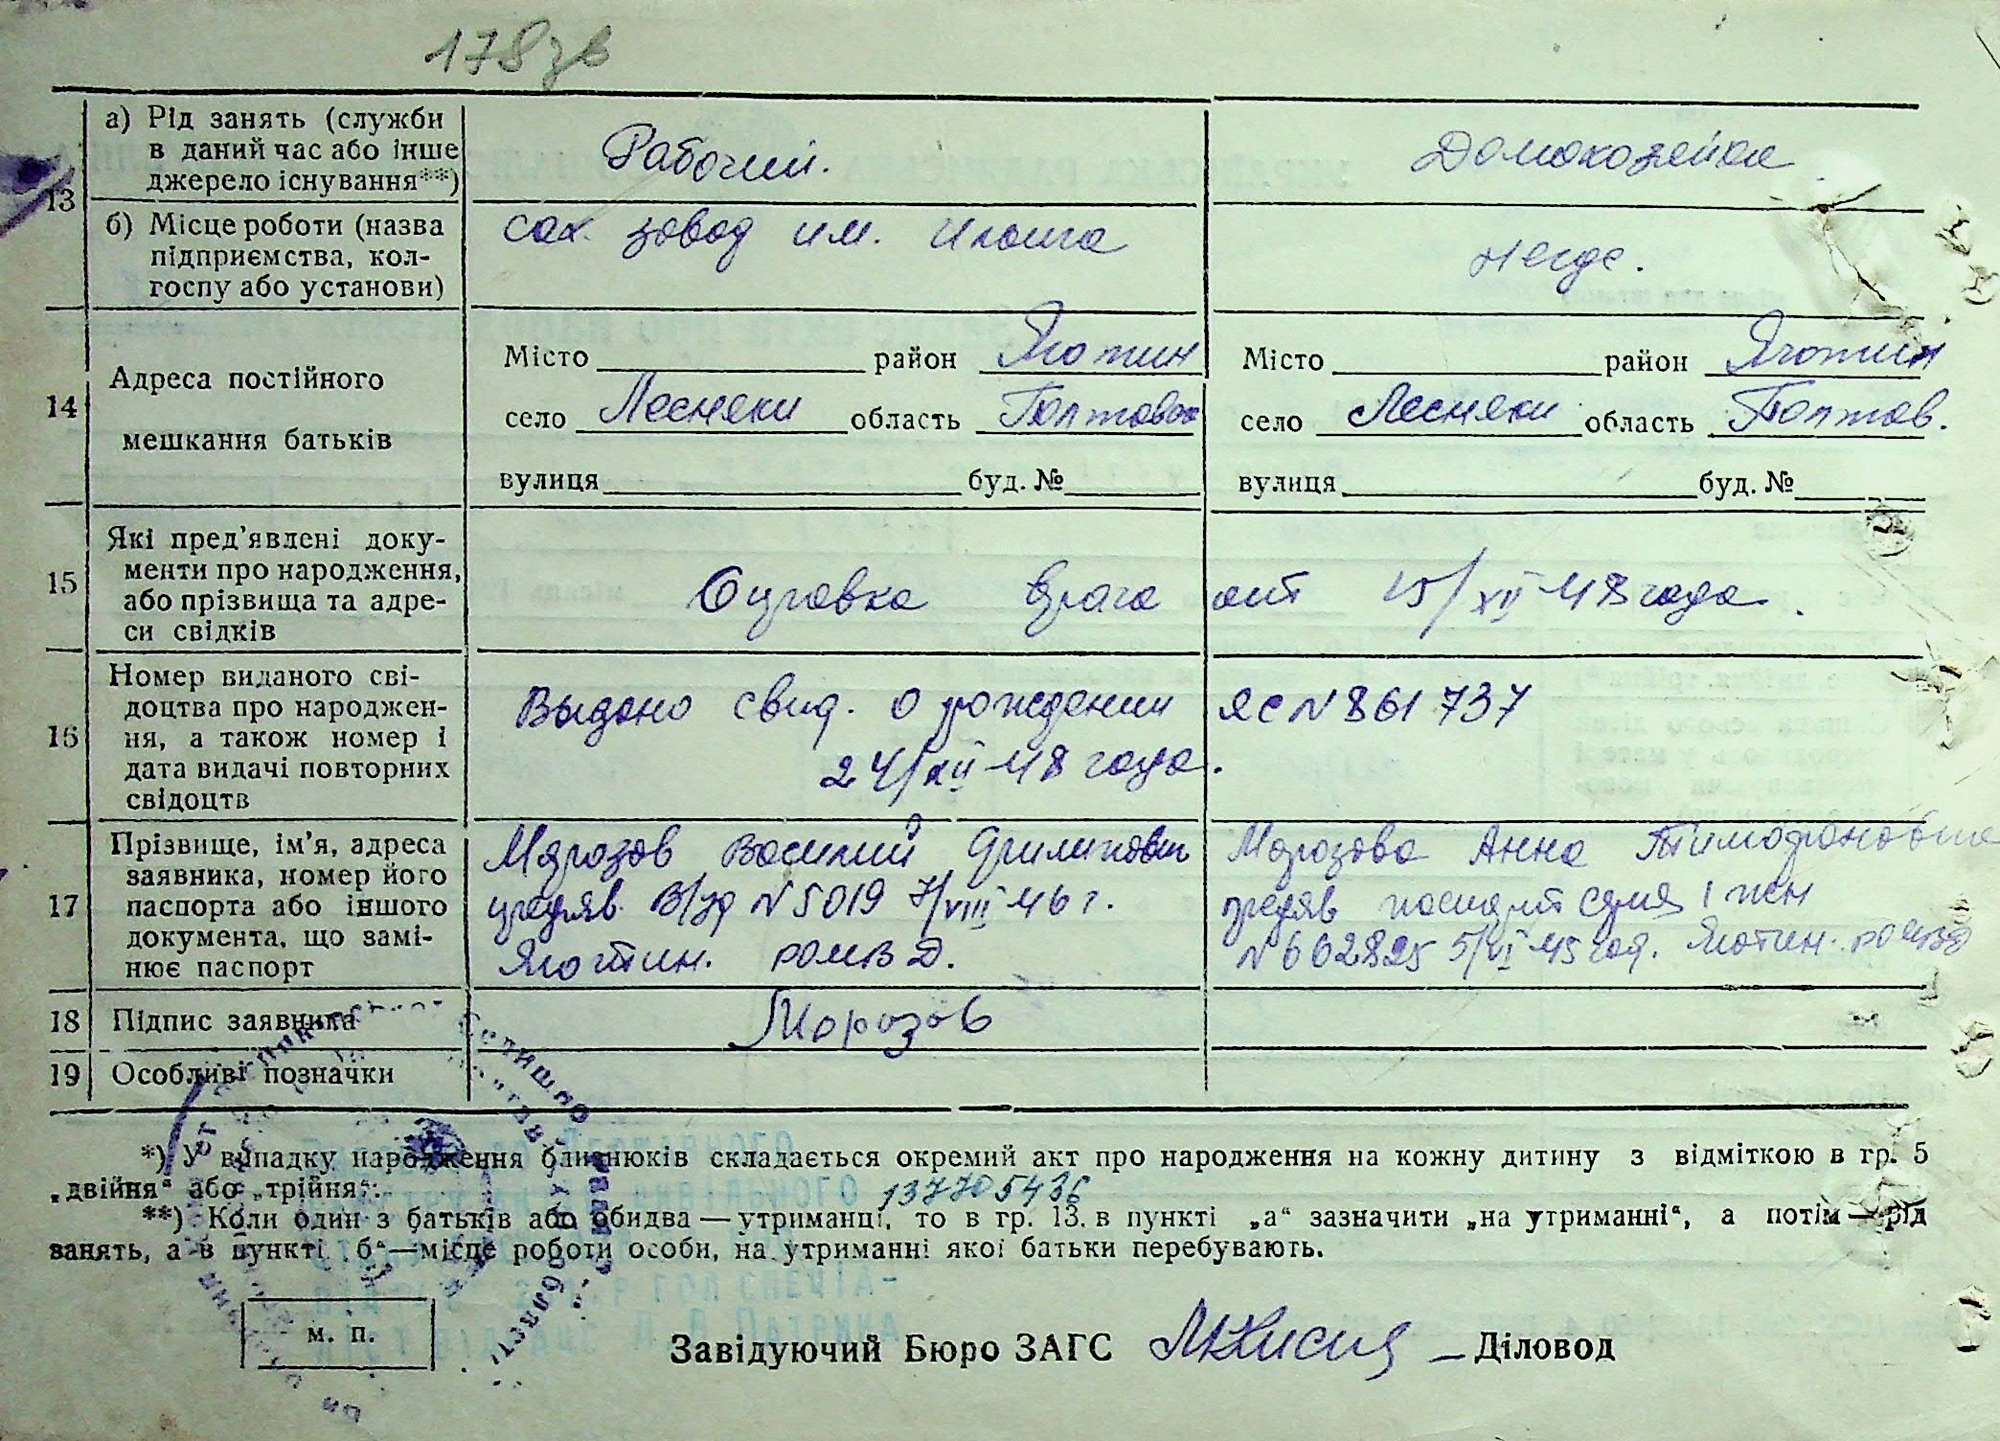 178 зв
13
а) Рід занять (служби
в даний час або інше
джерело існування**)
Рабочий.
Домохозяйка
б) Місце роботи (назва
підприємства, кол-
госпу або установи)
Сах. завод им. Ильича
Негде.
14
Адреса постійного
мешкання батьків
Місто район Яготин
село Лесняки область Полтавск
вулиця буд. №
Місто район Яготин
село Лесняки область Полтав.
вулиця буд. №
15
Які пред'явлені доку-
менти про народження,
або прізвища та адре-
си свідків
Справка врача от 15/XII-48 года.
16
Номер виданого сві-
доцтва про народжен-
ня, а також номер і
дата видачі повторних
свідоцтв
Выдано свид. о рождении ЯС N 861737
24/XII-48 года.
17
Прізвище, ім'я, адреса
заявника, номер його
паспорта або іншого
документа, що замі-
нює паспорт
Морозов Василий Филипович
предяв. В/уд N 5019 7/VIII-46 г.
Яготин. РОМВД.
Морозова Анна Тимофеновна
предяв паспорт
N 662825 5/VI-45 год. Яготин. РОМВД
18
Підпис заявника
Морозов
19
Особливі позначки
*) У випадку народження близнюків складається окремий акт про народження на кожну дитину з відміткою в гр. 5
„двійня“ або „трійня“.
137705436
**) Коли один з батьків або обидва — утриманці, то в гр. 13. в пункті „а“ зазначити „на утриманні“, а потім — рід
занять, а в пункті „б“—місце роботи особи, на утриманні якої батьки перебувають.
м. п.
Завідуючий Бюро ЗАГС
Діловод